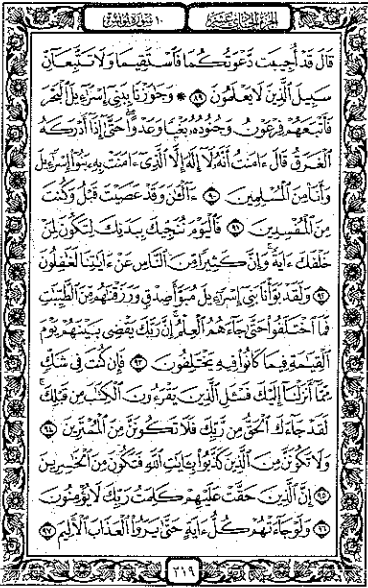 الجزء الحادي عشر ١٠ سورة يونس
قَالَ قَدْ أُجِيبَت دَّعْوَتُكُمَا فَٱسْتَقِيمَا وَلَا تَتَّبِعَآنِّ
سَبِيلَ ٱلَّذِينَ لَا يَعْلَمُونَ ٨٩ ۞ وَجَٰوَزْنَا بِبَنِىٓ إِسْرَٰٓءِيلَ ٱلْبَحْرَ
فَأَتْبَعَهُمْ فِرْعَوْنُ وَجُنُودُهُۥ بَغْيًا وَعَدْوًا ۖ حَتَّىٰٓ إِذَآ أَدْرَكَهُ
ٱلْغَرَقُ قَالَ ءَامَنتُ أَنَّهُۥ لَآ إِلَٰهَ إِلَّا ٱلَّذِىٓ ءَامَنَتْ بِهِۦ بَنُوٓا۟ إِسْرَٰٓءِيلَ
وَأَنَا۠ مِنَ ٱلْمُسْلِمِينَ ٩٠ ءَآلْـَٰٔنَ وَقَدْ عَصَيْتَ قَبْلُ وَكُنتَ
مِنَ ٱلْمُفْسِدِينَ ٩١ فَٱلْيَوْمَ نُنَجِّيكَ بِبَدَنِكَ لِتَكُونَ لِمَنْ
خَلْفَكَ ءَايَةً ۚ وَإِنَّ كَثِيرًا مِّنَ ٱلنَّاسِ عَنْ ءَايَٰتِنَا لَغَٰفِلُونَ
٩٢ وَلَقَدْ بَوَّأْنَا بَنِىٓ إِسْرَٰٓءِيلَ مُبَوَّأَ صِدْقٍ وَرَزَقْنَٰهُم مِّنَ ٱلطَّيِّبَٰتِ
فَمَا ٱخْتَلَفُوا۟ حَتَّىٰ جَآءَهُمُ ٱلْعِلْمُ ۚ إِنَّ رَبَّكَ يَقْضِى بَيْنَهُمْ يَوْمَ
ٱلْقِيَٰمَةِ فِيمَا كَانُوا۟ فِيهِ يَخْتَلِفُونَ ٩٣ فَإِن كُنتَ فِى شَكٍّ
مِّمَّآ أَنزَلْنَآ إِلَيْكَ فَسْـَٔلِ ٱلَّذِينَ يَقْرَءُونَ ٱلْكِتَٰبَ مِن قَبْلِكَ ۚ
لَقَدْ جَآءَكَ ٱلْحَقُّ مِن رَّبِّكَ فَلَا تَكُونَنَّ مِنَ ٱلْمُمْتَرِينَ ٩٤
وَلَا تَكُونَنَّ مِنَ ٱلَّذِينَ كَذَّبُوا۟ بِـَٔايَٰتِ ٱللَّهِ فَتَكُونَ مِنَ ٱلْخَٰسِرِينَ
٩٥ إِنَّ ٱلَّذِينَ حَقَّتْ عَلَيْهِمْ كَلِمَتُ رَبِّكَ لَا يُؤْمِنُونَ
٩٦ وَلَوْ جَآءَتْهُمْ كُلُّ ءَايَةٍ حَتَّىٰ يَرَوُا۟ ٱلْعَذَابَ ٱلْأَلِيمَ ٩٧
٢١٩